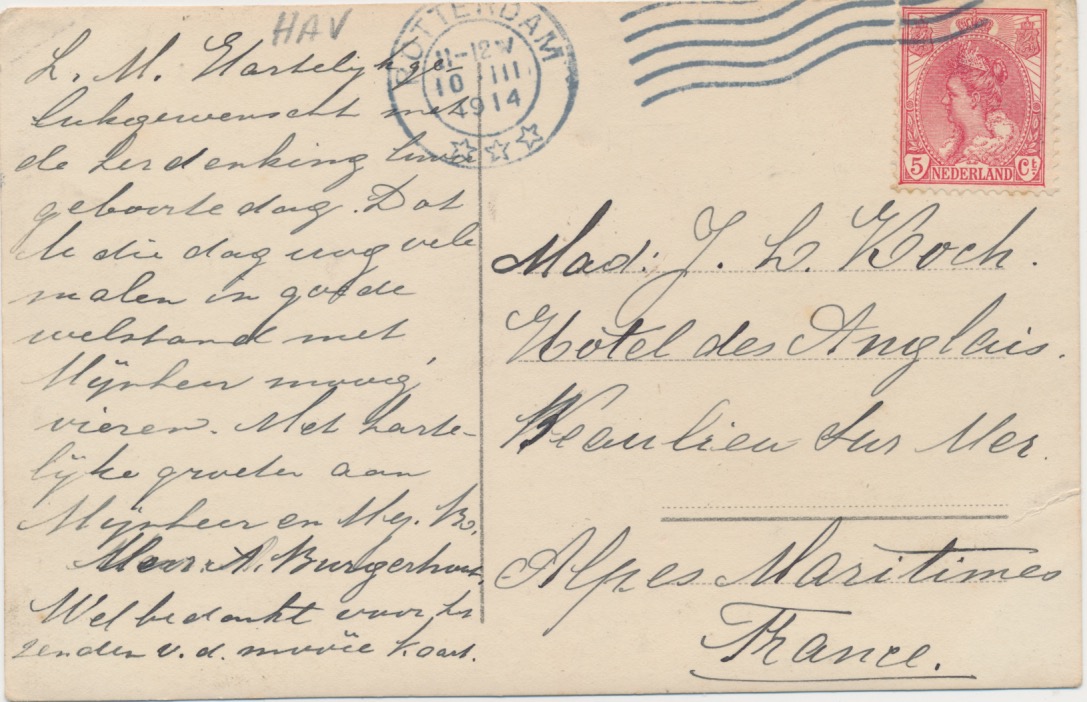 HAV
ROTTERDAM
11-12 V
10 III
1914
5 NEDERLAND Ct
L. M. Hartelijk ge-
lukgewenscht met
de herdenking Uwer
geboortedag. Dat
U die dag nog vele
malen in goede
welstand met
Mijnheer moog
vieren. Met harte-
lijke groeten aan
Mijnheer en Mej. B.
Mevr. A. Burgerhout.
Wel bedankt voor het
zenden v. d. mooie kaart.
Mad: J. L. Koch.
Hotel des Anglais.
Beaulieu sur Mer.
Alpes Maritimes
France.